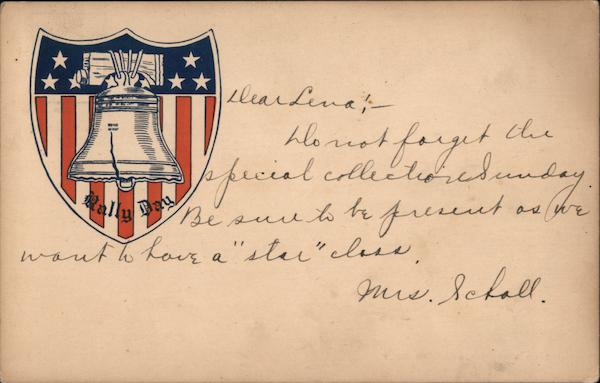 Rally Day
Dear Lena;—
Do not forget the
special collection Sunday.
Be sure to be present as we
want to have a "star" class.
Mrs. Scholl.